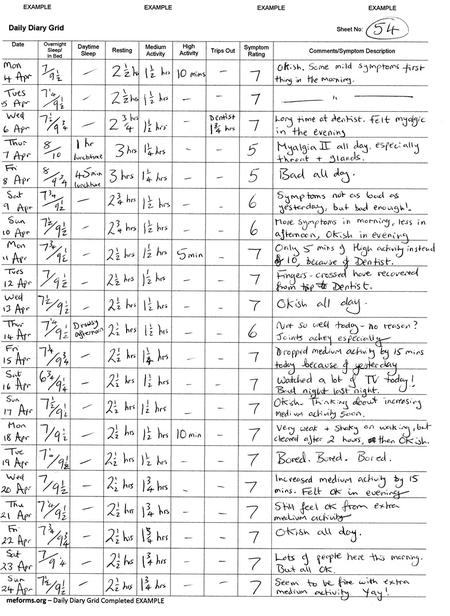 EXAMPLE EXAMPLE EXAMPLE EXAMPLE
Daily Diary Grid Sheet No: 54
Date Overnight Sleep/ In Bed Daytime Sleep Resting Medium Activity High Activity Trips Out Symptom Rating Comments/Symptom Description
Mon 4 Apr 7/9½ – 2½ hrs 1½ hrs 10 mins – 7 Okish. Some mild symptoms first thing in the morning.
Tues 5 Apr – 2½ hrs 1½ hrs – – 7 — " —
Wed 6 Apr – 2¾ hrs 1½ hrs – Dentist 1¾ hrs 7 Long time at dentist. felt myalgic in the evening
Thur 7 Apr 8/10 1 hr lunchtime 3 hrs 1¼ hrs – – 5 Myalgia II all day. especially throat + glands.
Fri 8 Apr 8/9¾ 45 min lunchtime 3 hrs 1¼ hrs – – 5 Bad all day.
Sat 9 Apr – 2¾ hrs 1½ hrs – – 6 Symptoms not as bad as yesterday, but bad enough!.
Sun 10 Apr – 2¾ hrs 1½ hrs – – 6 More symptoms in morning, less in afternoon, Okish in evening
Mon 11 Apr – 2½ hrs 1½ hrs 5 min – 7 Only 5 mins of High activity instead of 10, because of Dentist.
Tues 12 Apr 7/9½ – 2½ hrs 1½ hrs – – 7 Fingers-crossed have recovered from trip to Dentist.
Wed 13 Apr 7½/9½ – 2½ hrs 1½ hrs – – 7 Okish all day.
Thur 14 Apr Drowsy afternoon 2½ hrs 1½ hrs – – 6 Not so well today - no reason? Joints achey especially
Fri 15 Apr – 2½ hrs 1¼ hrs – – 7 Dropped medium activity by 15 mins today because of yesterday
Sat 16 Apr 6¾/9¼ – 2½ hrs 1½ hrs – – 7 Watched a lot of TV today! Bad night last night.
Sun 17 Apr – 2½ hrs 1½ hrs – – 7 Okish. Thinking about increasing medium activity soon.
Mon 18 Apr 7/9½ – 2½ hrs 1½ hrs 10 min – 7 Very weak + shaky on waking, but cleared after 2 hours, then Okish.
Tue 19 Apr – 2½ hrs 1½ hrs – – 7 Bored. Bored. Bored.
Wed 20 Apr 7/9½ – 2½ hrs 1¾ hrs – – 7 Increased medium activity by 15 mins. Felt OK in evening
Thu 21 Apr – 2½ hrs 1¾ hrs – – 7 Still feel ok from extra medium activity
Fri 22 Apr – 2½ hrs 1¾ hrs – – 7 Okish all day.
Sat 23 Apr 7/9¼ – 2½ hrs 1¾ hrs – – 7 Lots of people here this morning. But all OK.
Sun 24 Apr 7½/9½ – 2½ hrs 1¾ hrs – – 7 Seem to be fine with extra medium activity Yay!
meforms.org – Daily Diary Grid Completed EXAMPLE